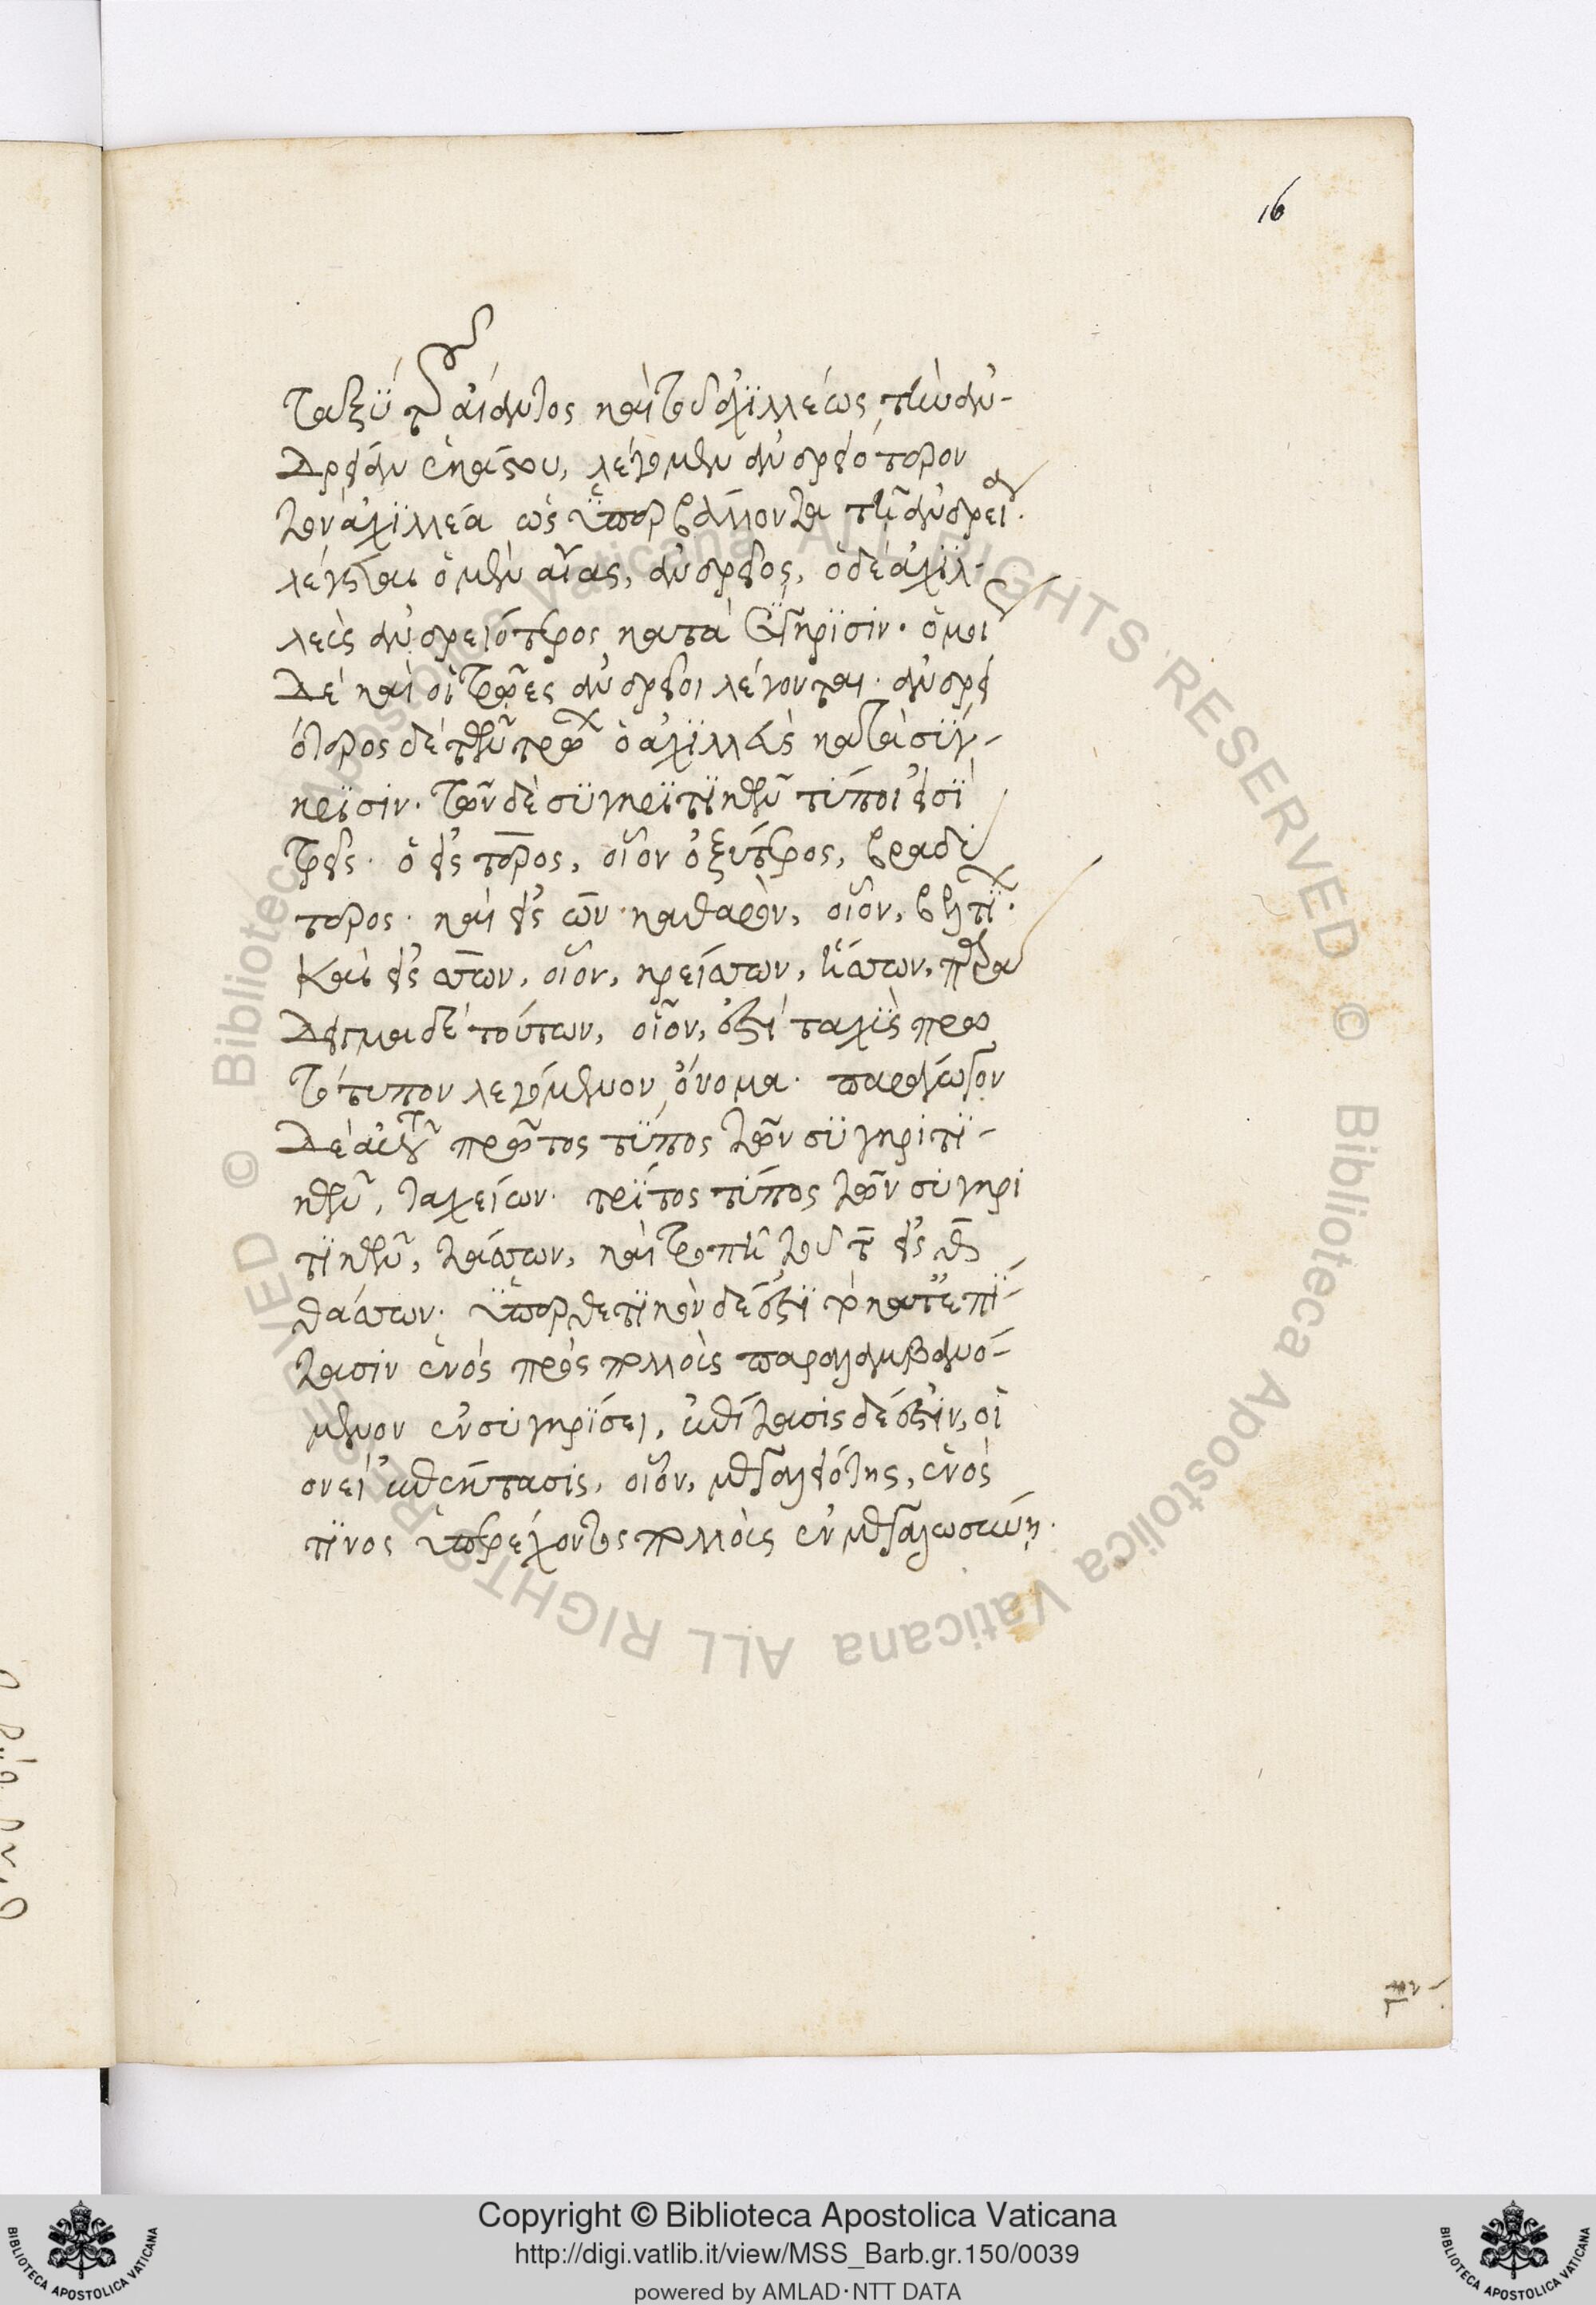 16
ταξὺ τοῦ αἴαντος καὶ τοῦ ἀχιλλέως τὴν ἀν-
δρείαν ἑκάστου, λέγομεν ἀνδρειότερον
τὸν ἀχιλλέα ὡς ὑπερβάλλοντα τῇ ἀνδρείᾳ.
λέγεται ὁ μὲν αἴας, ἀνδρεῖος, ὁ δὲ ἀχιλ-
λεὺς ἀνδρειότερος κατὰ σύγκρισιν. ὅμοι
δὲ καὶ οἱ τρῶες ἀνδρεῖοι λέγονται. ἀνδρει
ότερος δὲ τῶν τρώων ὁ ἀχιλλεὺς κατὰ σύγ-
κρισιν. τῶν δὲ συγκριτικῶν τύποι εἰσὶ
τρεῖς. ὁ εἰς τερος, οἷον ὀξύτερος, βραδύ
τερος. καὶ εἰς ων καθαρὸν, οἷον, βελτίων.
καὶ εἰς σσων, οἷον, κρείσσων, ἥσσων, παρα
δειγμα δὲ τούτων, οἷον, ἐστὶ ταχὺς πρω
τότυπον λεγόμενον ὄνομα. παράγωγον
δὲ αὐτοῦ πρῶτος τύπος τῶν συγκριτι-
κῶν, ταχείων. τρίτος τύπος τῶν συγκρι
τικῶν, τάσσων, καὶ τροπῇ τοῦ τ εἰς θ
θάσσων. ὑπερθετικὸν δέ ἐστι τὸ κατ' ἐπί-
τασιν ἑνὸς πρὸς πολλοὺς παραλαμβανό-
μενον ἐν συγκρίσει, ἐπίτασις δέ ἐστιν, οἱ
ονεὶ ἐπέκτασις, οἷον, μεγαλειότης, ἑνός
τινος ὑπερέχοντος πολλοὺς ἐν μεγαλωσύνῃ.
Copyright © Biblioteca Apostolica Vaticana
http://digi.vatlib.it/view/MSS_Barb.gr.150/0039
powered by AMLAD·NTT DATA